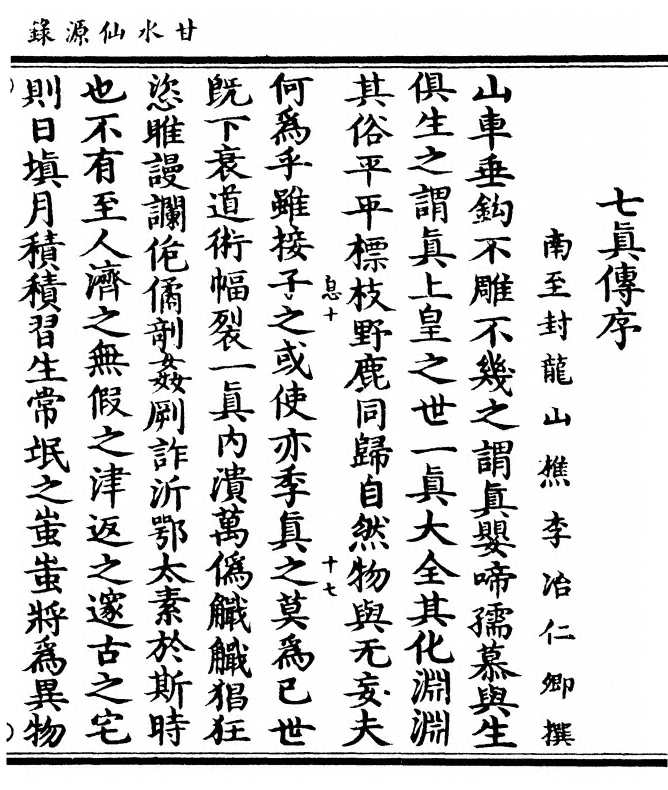 甘水仙源錄
七眞傳序
南至封龍山樵李冶仁卿撰
山車垂鈎不雕不幾之謂眞嬰啼孺慕與生
俱生之謂眞上皇之世一眞大全其化淵淵
其俗平平標枝野鹿同歸自然物與无妄夫
息十
十七
何爲乎雖接子之或使亦季眞之莫爲已世
旣下衰道術幅裂一眞內潰萬僞觿觿猖狂
恣睢謾讕佹僪剬姦剧詐沂鄂太素於斯時
也不有至人濟之無假之津返之邃古之宅
則日塡月積積習生常垊之蚩蚩將爲異物